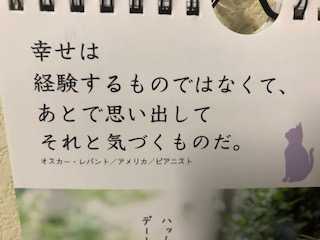 幸せは
経験するものではなくて、
あとで思い出して
それと気づくものだ。
オスカー・レバント／アメリカ／ピアニスト
ハッ
デー